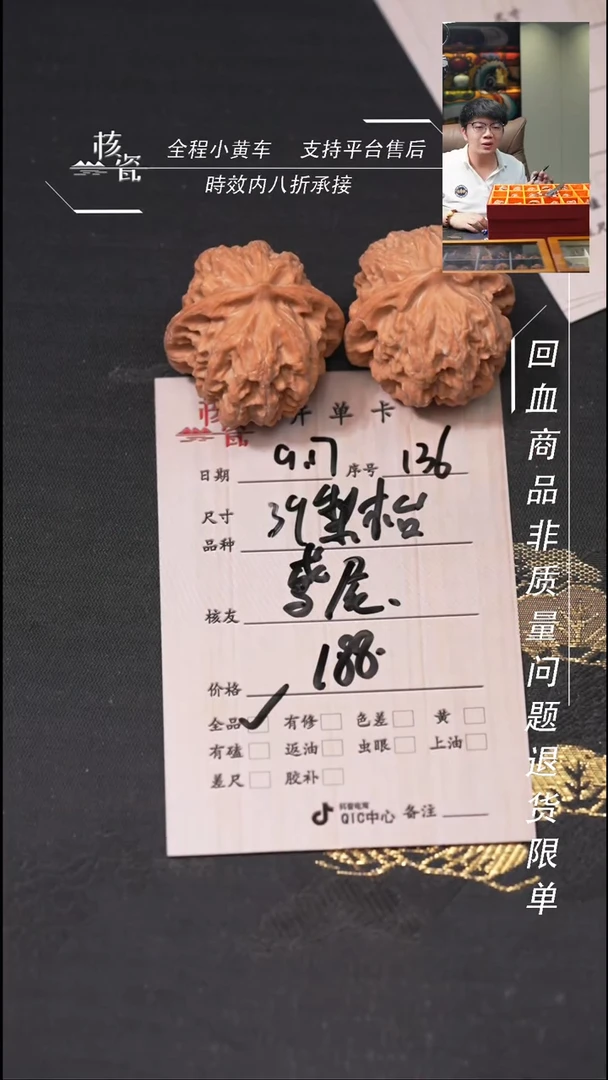 核瓷
全程小黄车 支持平台售后
時效内八折承接
回血商品非质量问题退货限单
核瓷 开单卡
日期 9.17 序号 136
尺寸 39梨枱
品种
核友 鸢尾.
价格 188.
全品 ✓ 有修 色差 黄
有磕 返油 虫眼 上油
差尺 胶补
抖音电商
QIC中心 备注